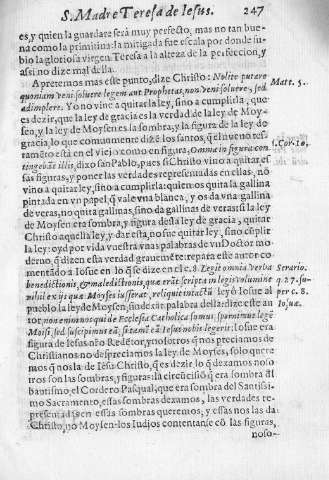 S. Madre Teresa de Iesus. 247
es, y quien la guardare será muy perfecto, mas no tan bue-
na como la primitiua: la mitigada fue escala por donde su-
bio la gloriosa virgen Teresa a la alteza de la perfeccion, y
assi no dize mal della.
Apretemos mas este punto, dize Christo: Nolite putare
quoniam veni soluere legem aut Prophetas, non veni soluere, sed
adimplere. Yo no vine a quitar la ley, sino a cumplirla, que
es dezir, que la ley de gracia es la verdad de la ley de Moy-
sen, y la ley de Moysen es la sombra, y la figura de la ley de
gracia, lo que comunmente dizē los santos, q̄ el nueuo tes-
tamēto està en el viejo como en figuras, Omnia in figura con-
tingebāt illis, dixo san Pablo, pues si Christo vino a quitar es-
sas figuras, y poner las verdades representadas en ellas, no
vino a quitar ley, sino a cumplirla: quien os quita la gallina
pintada en vn papel, q̄ vale vna blanca, y os da vna gallina
de veras, no quita gallinas, sino da gallinas de veras: si la ley
de Moysen era sombra, y figura desta ley de gracia, quitar
Christo aquella ley, y dar esta, no fue quitar ley, sino cūplir
la ley: oyd por vida vuestra vnas palabras de vn Doctor mo-
derno, q̄ dizen esta verdad grauemēte: repara este autor co-
mentādo a Iosue en lo q̄ se dize en el c. 8. Legit omnia verba
benedictionis, & maledictionis, quæ erāt scripta in legis volumine
nihil ex ijs quæ Moyses iusserat, reliquit intactū: leyò Iosue al
pueblo la ley de Moysen, sin dexar palabra della: dize este au
tor, non enim nos qui de Ecclesia Catholica sumus, spernimus legē
Moisi, sed suscipimus eā, si tamē eā Iesus nobis legerit: Iosue era
figura de Iesus nr̄o Redētor, y nosotros q̄ nos preciamos de
Christianos no despreciamos la ley de Moyses, solo quere
mos q̄ nosla de Iesu Christo, q̄ es dezir lo q̄ dexamos noso
tros son las sombras, y figuras: la circūcisiō q̄ era sombra ďl
bautismo, el Cordero Pasqual, que era sombra del Santissi
mo Sacramento, essas sombras dexamos, las verdades re-
presentadas en essas sombras queremos, y essas nos las da
Christo, no Moysen: los Iudios contentanse cō las figuras,
noso-
Matt. 5.
1. Cor. 10.
Serario.
q. 27. su-
per c. 8.
Iosuæ.